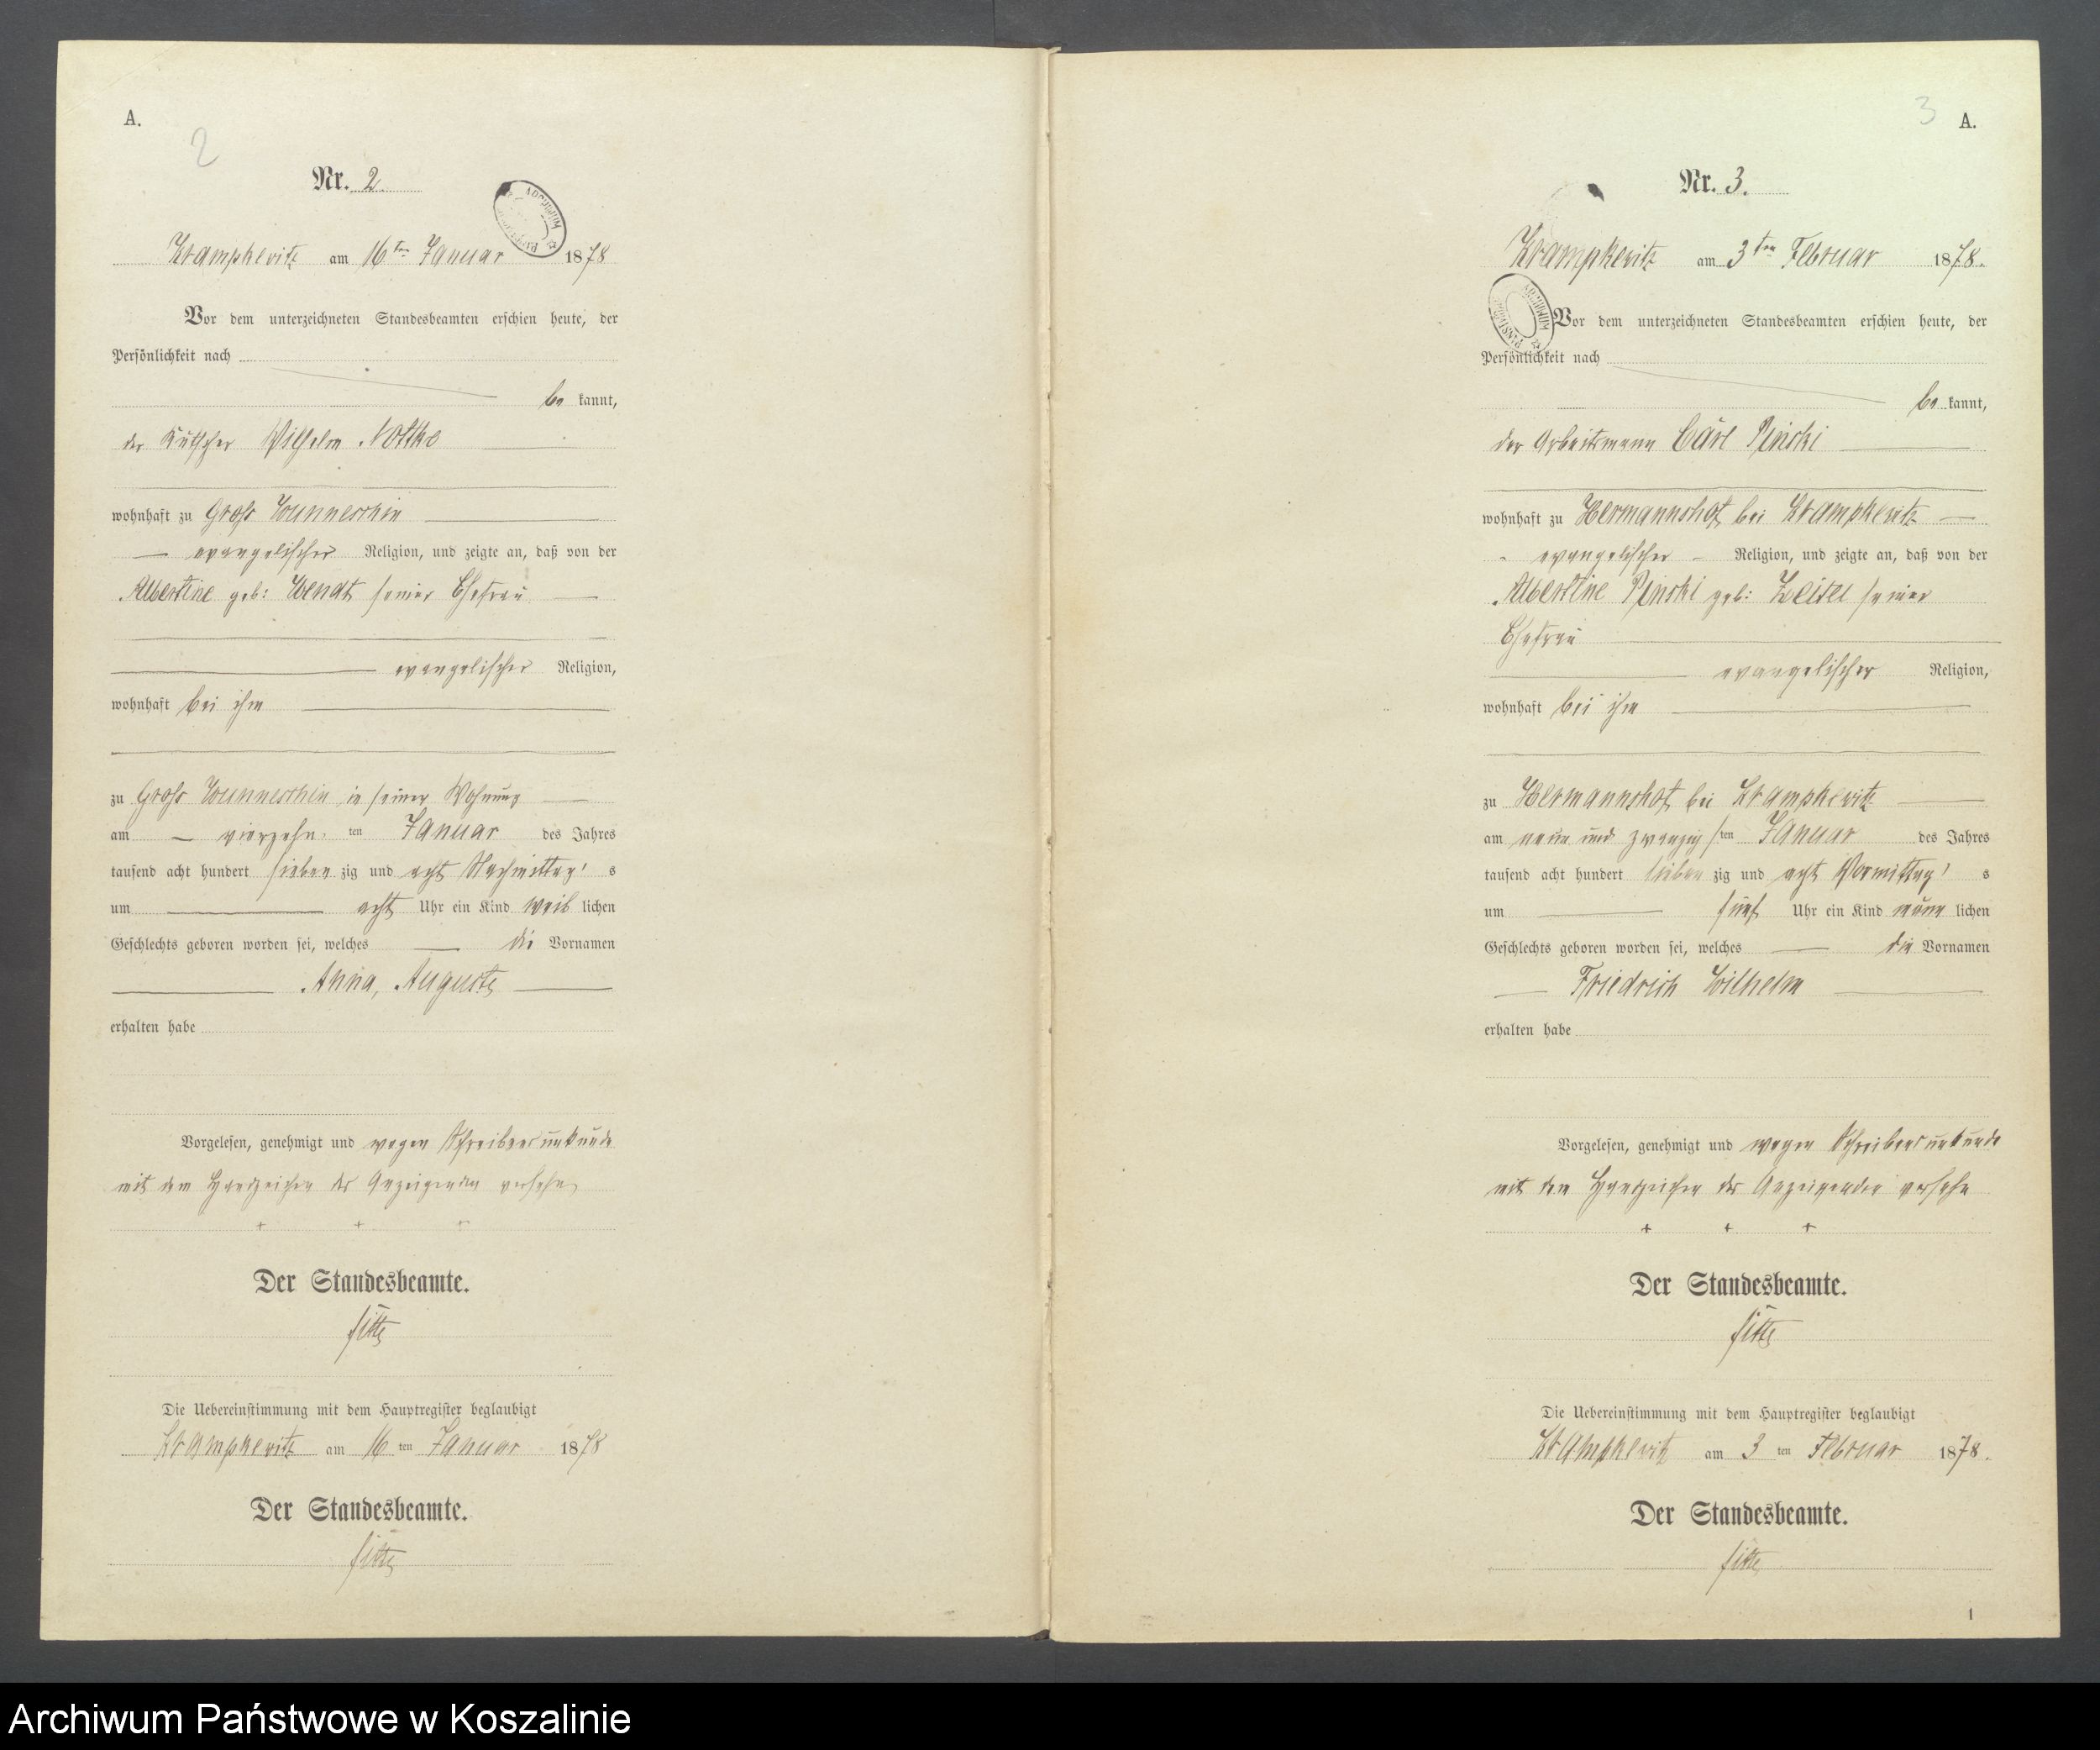 A.
2
Nr. 2.
Krampkewitz am 16ten Januar 1878
Vor dem unterzeichneten Standesbeamten erschien heute, der
Persönlichkeit nach
be kannt,
der Kutscher Wilhelm Nottke
wohnhaft zu Gross Wunneschin
evangelischer Religion, und zeigte an, daß von der
Albertine geb: Wendt seiner Ehefrau
evangelischer Religion,
wohnhaft bei ihm
zu Gross Wunneschin in seiner Wohnung
am vierzehn ten Januar des Jahres
tausend acht hundert sieben zig und acht Nachmittag s
um acht Uhr ein Kind weib lichen
Geschlechts geboren worden sei, welches die Vornamen
Anna, Auguste
erhalten habe
Vorgelesen, genehmigt und wegen Schreibensunkunde
mit dem Handzeichen des Anzeigenden versehen
+ + +
Der Standesbeamte.
Die Uebereinstimmung mit dem Hauptregister beglaubigt
Krampkewitz am 16 ten Januar 1878
Der Standesbeamte.
3
A.
Nr. 3.
Krampkewitz am 3ten Februar 1878.
ARCHIWUM
Vor dem unterzeichneten Standesbeamten erschien heute, der
Persönlichkeit nach
be kannt,
der Arbeitsmann Carl Pinski
wohnhaft zu Hermannshof bei Krampkewitz
evangelischer Religion, und zeigte an, daß von der
Albertine Pinski geb: seiner
Ehefrau
evangelischer Religion,
wohnhaft bei ihm
zu Hermannshof bei Krampkewitz
am neun und zwanzigs ten Januar des Jahres
tausend acht hundert sieben zig und acht Vormittag s
um fünf Uhr ein Kind männ lichen
Geschlechts geboren worden sei, welches die Vornamen
Friedrich Wilhelm
erhalten habe
Vorgelesen, genehmigt und wegen Schreibensunkunde
mit dem Handzeichen des Anzeigenden versehn
+ + +
Der Standesbeamte.
Die Uebereinstimmung mit dem Hauptregister beglaubigt
Krampkewitz am 3 ten Februar 1878.
Der Standesbeamte.
1
Archiwum Państwowe w Koszalinie